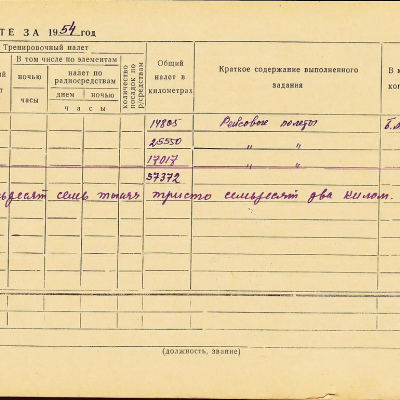 ТЕ ЗА 1954 год
Тренировочный налет
В том числе по элементам
ночью
налет по радиосредствам
количество посадок по р/средствам
Общий налет в километрах
Краткое содержание выполненного задания
В к
часы
днем
ночью
часы
14805 Рейсовые полеты
25550 " "
17017 " "
57372
десят семь тысяч триста семьдесят два килом.
(должность, звание)